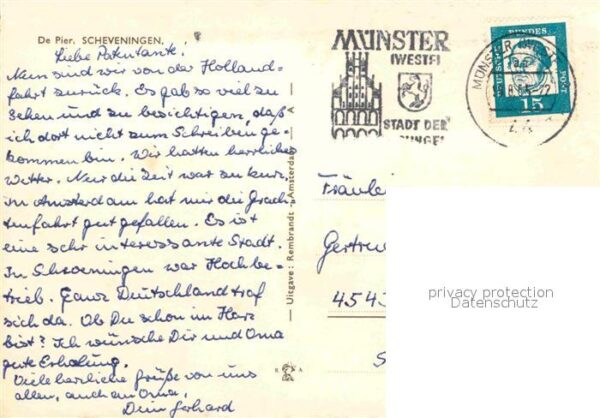 De Pier. SCHEVENINGEN,
Liebe Patentante.
Nun sind wir von der Holland-
fahrt zurück. Es gab so viel zu
sehen und zu besichtigen, daß
ich dort nicht zum Schreiben ge-
kommen bin. Wir hatten herrliches
Wetter. Nur die Zeit war zu kurz.
in Amsterdam hat mir die Grach-
tenfahrt gut gefallen. Es ist
eine sehr interessante Stadt.
In Scheveningen war Hochbe-
trieb. Ganz Deutschland traf
sich da. Ob Du schon im Harz
bist? Ich wünsche Dir und Oma
gute Erholung.
Viele herzliche Grüße von uns
allen, auch an Oma.
Dein Gerhard
Uitgave: Rembrandt - Amsterdam
R A
MÜNSTER
(WESTF)
STADT DER
MÜNSTER
DEUTSCHE
BUNDES
POST
15
Fräulei
Gertru
4543
privacy protection
Datenschutz